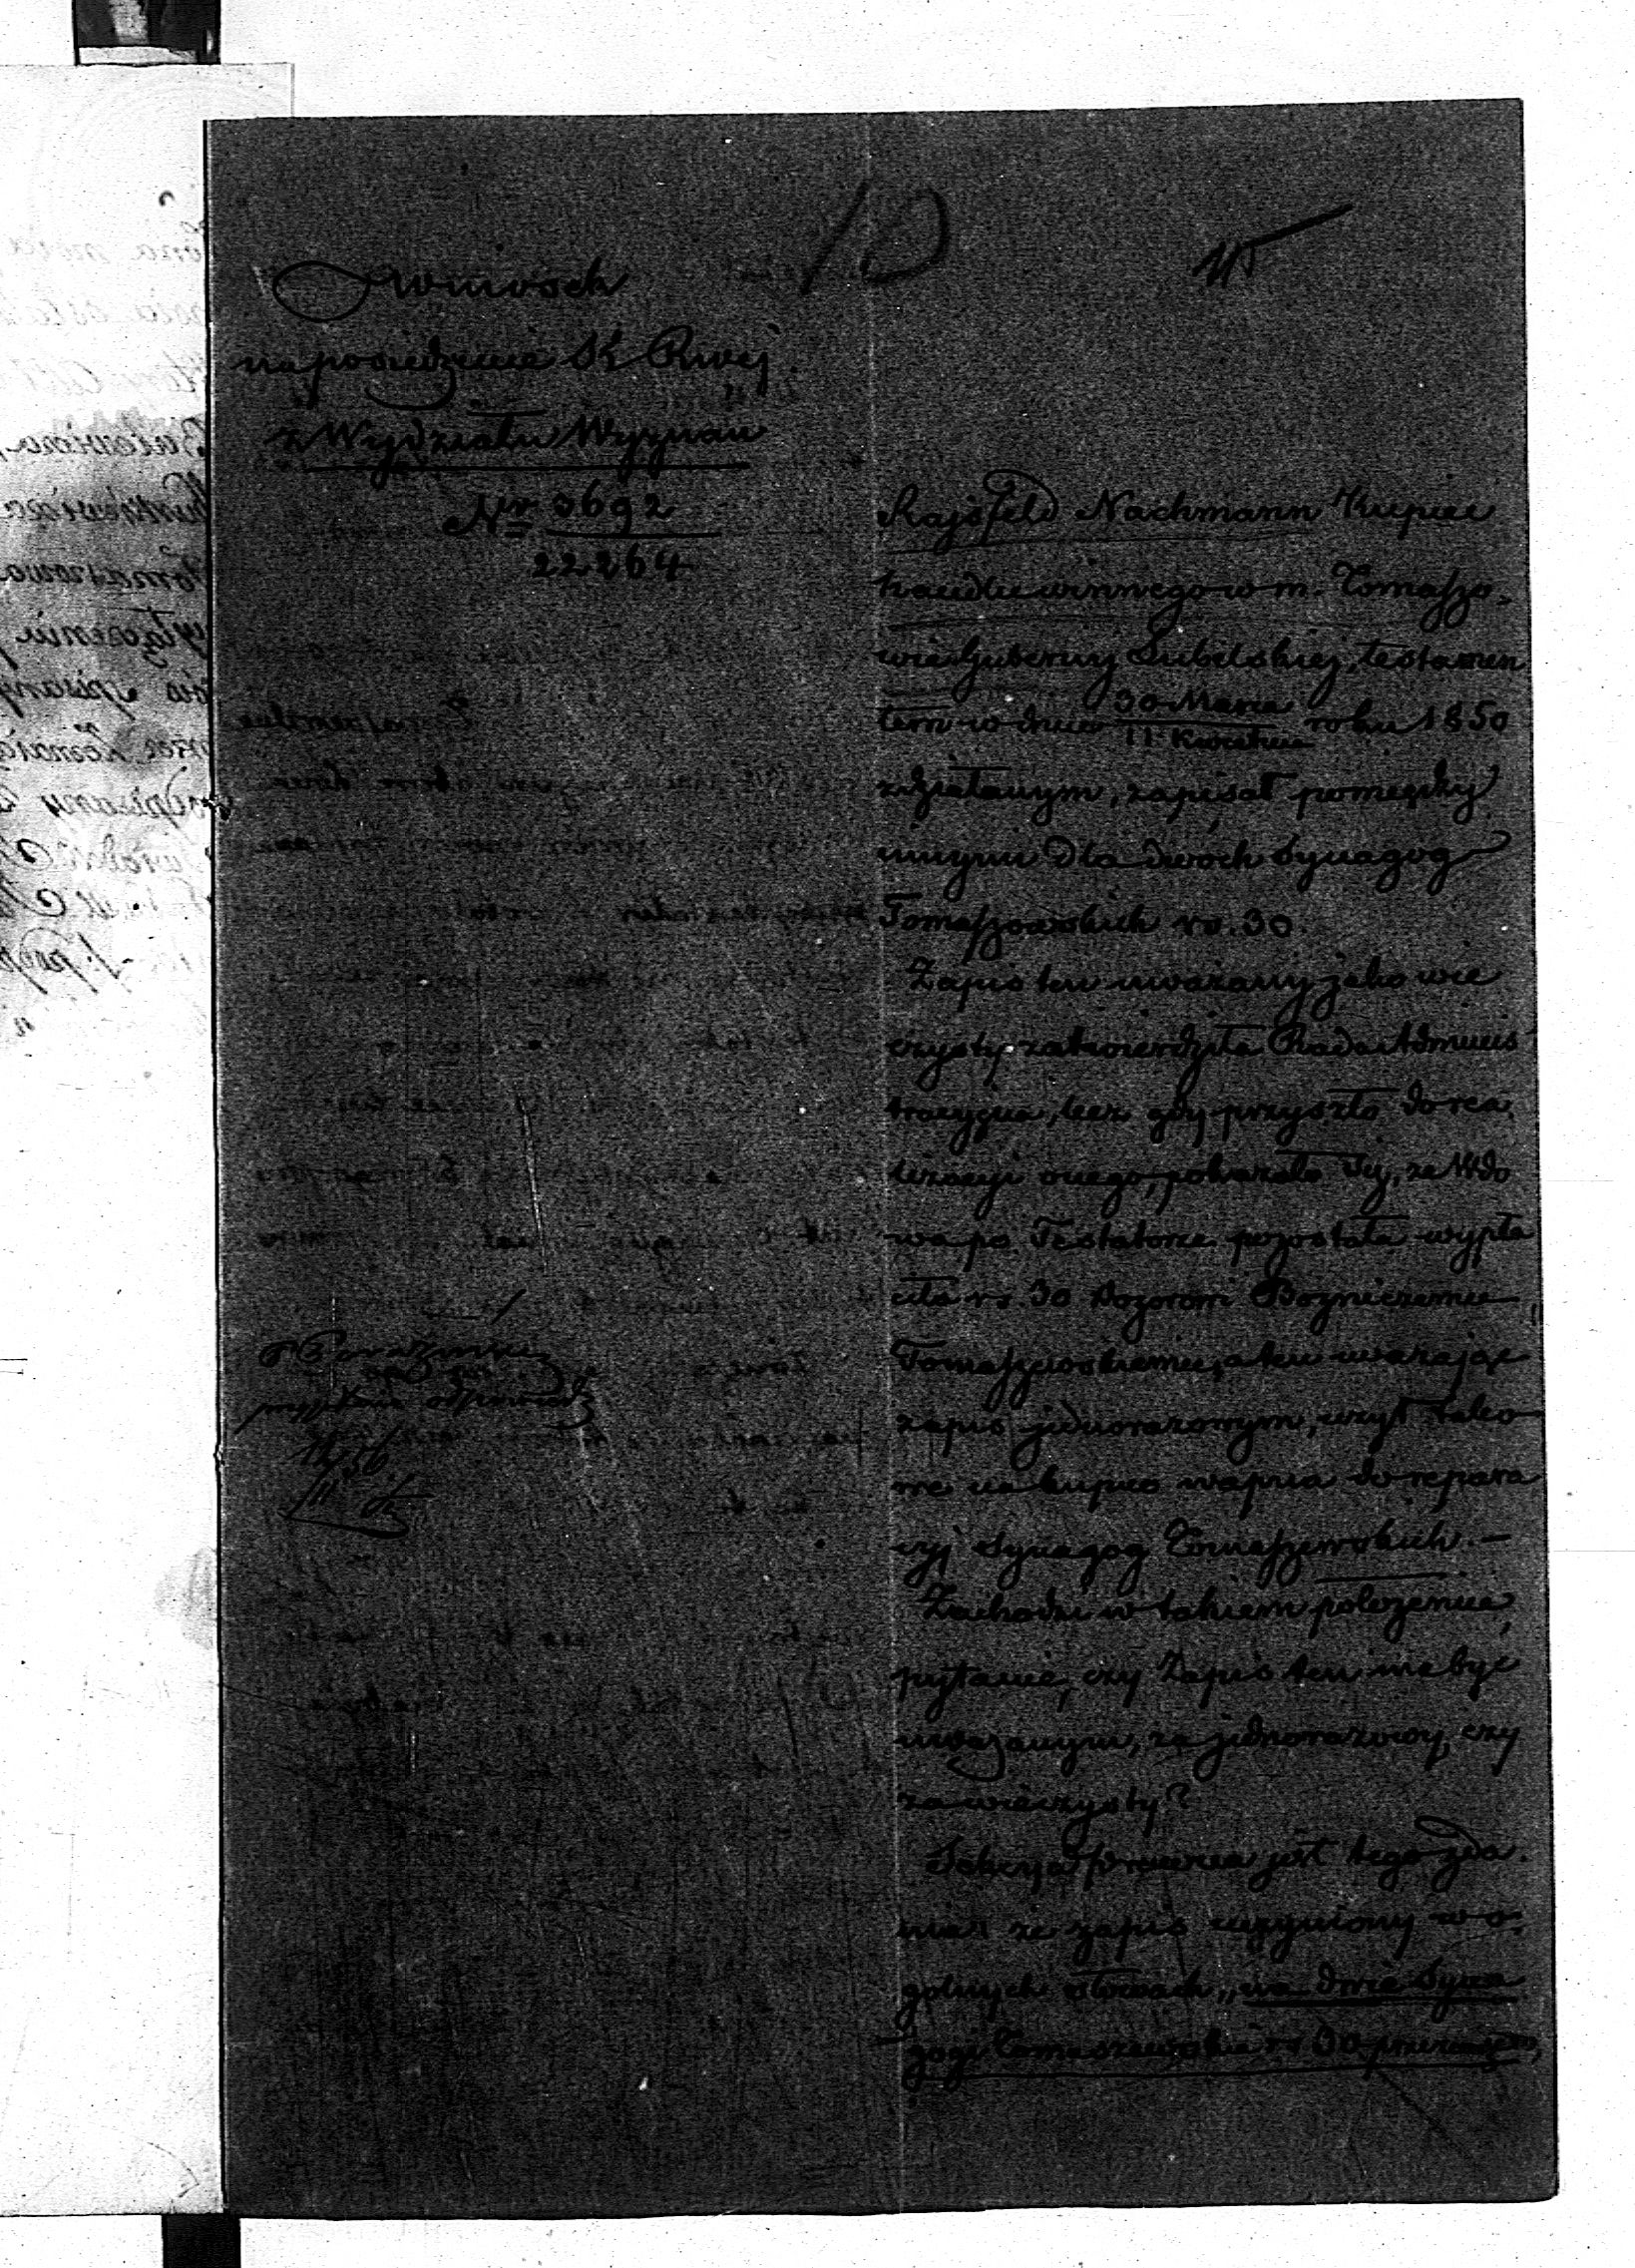 10
115
Wniosek
na posiedzenie K. R...ej
z Wydziału Wyznań
Nr 3692
22264
Rajsfeld Nachmann Kupiec
handlu winnego w m. Tomaszo-
wie Gubernij Lubelskiej, testamen
tem w dniu 30 Marca / 11 Kwietnia roku 1850
zdziałanym, zapisał pomiędzy
innymi dla dwóch Synagog
Tomaszowskich rs. 30.
Zapis ten uważany jako wie
czysty zatwierdziła Rada Adminis
tracyjna, lecz gdy przyszło do rea
lizacyi onego, pokazało się, że Wdo
wa po Testatorze pozostała wypła
ciła rs. 30 Dozorowi Bożniczemu
Tomaszowskiemu, a ten uważając
zapis jednorazowym, użył tako
we na kupno wapna do repara
cyj Synagog Tomaszowskich. —
Zachodzi w takiem położeniu
pytanie, czy Zapis ten ma być
uważanym, za jednorazowy, czy
za wieczysty?
Sekcya Prawna jest tego zda-
nia że zapis uczyniony w o-
gólnych słowach „na dwie Syna
gogi Tomaszowskie rs 30 przeznaczam,
odpowiedź
12/II 56